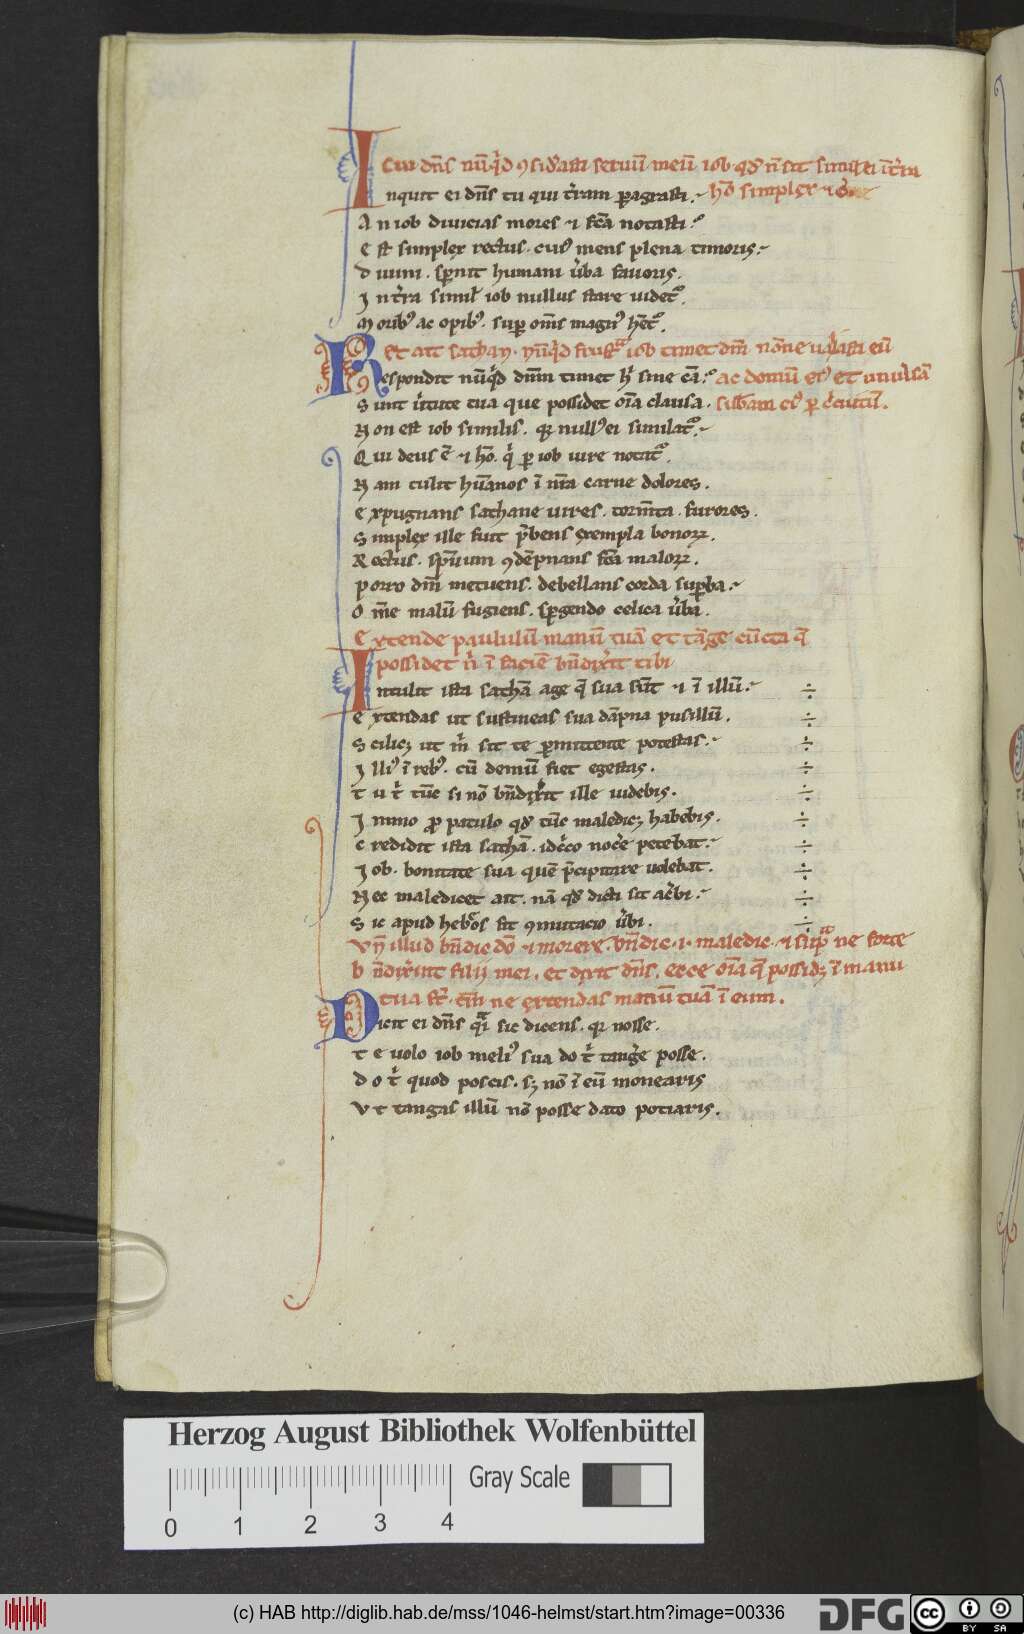 Cui dn̄s nūq'd ꝯsid'asti seruū meū iob qd' n̄ sit simil' ei ī t'ra
Inquit ei dn̄s tu qui t'ram ꝑagrasti. hō simplex ⁊
An iob diuicias mores ⁊ fc̄a notasti.
Est simplex rectus. cui⁹ mens plena timoris.
Diuini. sp̄nit humani u'ba fauoris.
In t'ra simil' iob nullus stare uidet'.
Morib⁹ ac opib⁹. suꝑ om̄s magn⁹ h'et'.
Et ait sathan. nūq'd frustra iob timet dm̄ nōne uallasti eū
Respondit nūq'd dn̄m timet h' sine cā. ac domū ei⁹ et uniu'sā
Sunt u'tute tua que possidet oīa clausa. subam ei⁹ ꝑ c'cuitū.
Non est iob similis. qr null⁹ ei similat'.
Qui deus ē ⁊ hō. q' ꝑ iob uire notat'.
Nam tulit hūanos ī nr̄a carne dolores.
Expugnans sathane uires. torm̄ta. furores.
Simplex ille fuit p'bens exempla bonoꝝ.
Rectus. sp̄uum ꝯdēpnans fc̄a maloꝝ.
Porro dm̄ metuens. debellans corda suꝑba.
Om̄e malū fugiens. sp̄gendo celica u'ba.
Extende paululū manū tuā et tāge cūcta q̄
possidet n' ī faciē bn̄dix'it tibi
Intulit ista sathā age q̄ sua sūt ⁊ ī illū. ÷
Extendas ut sustineas sua dāpna pusillū. ÷
Scilicꝫ ut m' sit te ꝑmittente potestas. ÷
Illi⁹ ī reb⁹. cū demū fiet egestas. ÷
Tu t' tūc si nō bn̄dix'it ille uidebis. ÷
Immo ꝓ patulo qd' tūc maledicꝫ habebis. ÷
Credidit ista sathā. idc'co noc'e petebat. ÷
Iob. bonitate sua quē p'cipitare uolebat. ÷
Nec maledicet ait. nā qd' dicti sit ac'bi. ÷
Sic apud hebr'os fit ꝯmutacio u'bi. ÷
Vn̄ illud bn̄dic dō ⁊ morere. bn̄dic .i. maledic. ⁊ sup̄a ne forte
bn̄dix'int filij mei. et dixit dn̄s. ecce oīa q̄ possidꝫ ī manu
tua st̄. tm̄ ne extendas manū tuā ī eum.
Dicit ei dn̄s q'i sic dicens. qr nosse.
Te uolo iob meli⁹ sua do t' tang'e posse.
Do t' quod poscis. sꝫ nō ī eū monearis
Vt tangas illū nō posse dato potiaris.
Herzog August Bibliothek Wolfenbüttel
Gray Scale
0 1 2 3 4
(c) HAB http://diglib.hab.de/mss/1046-helmst/start.htm?image=00336
DFG
cc BY SA